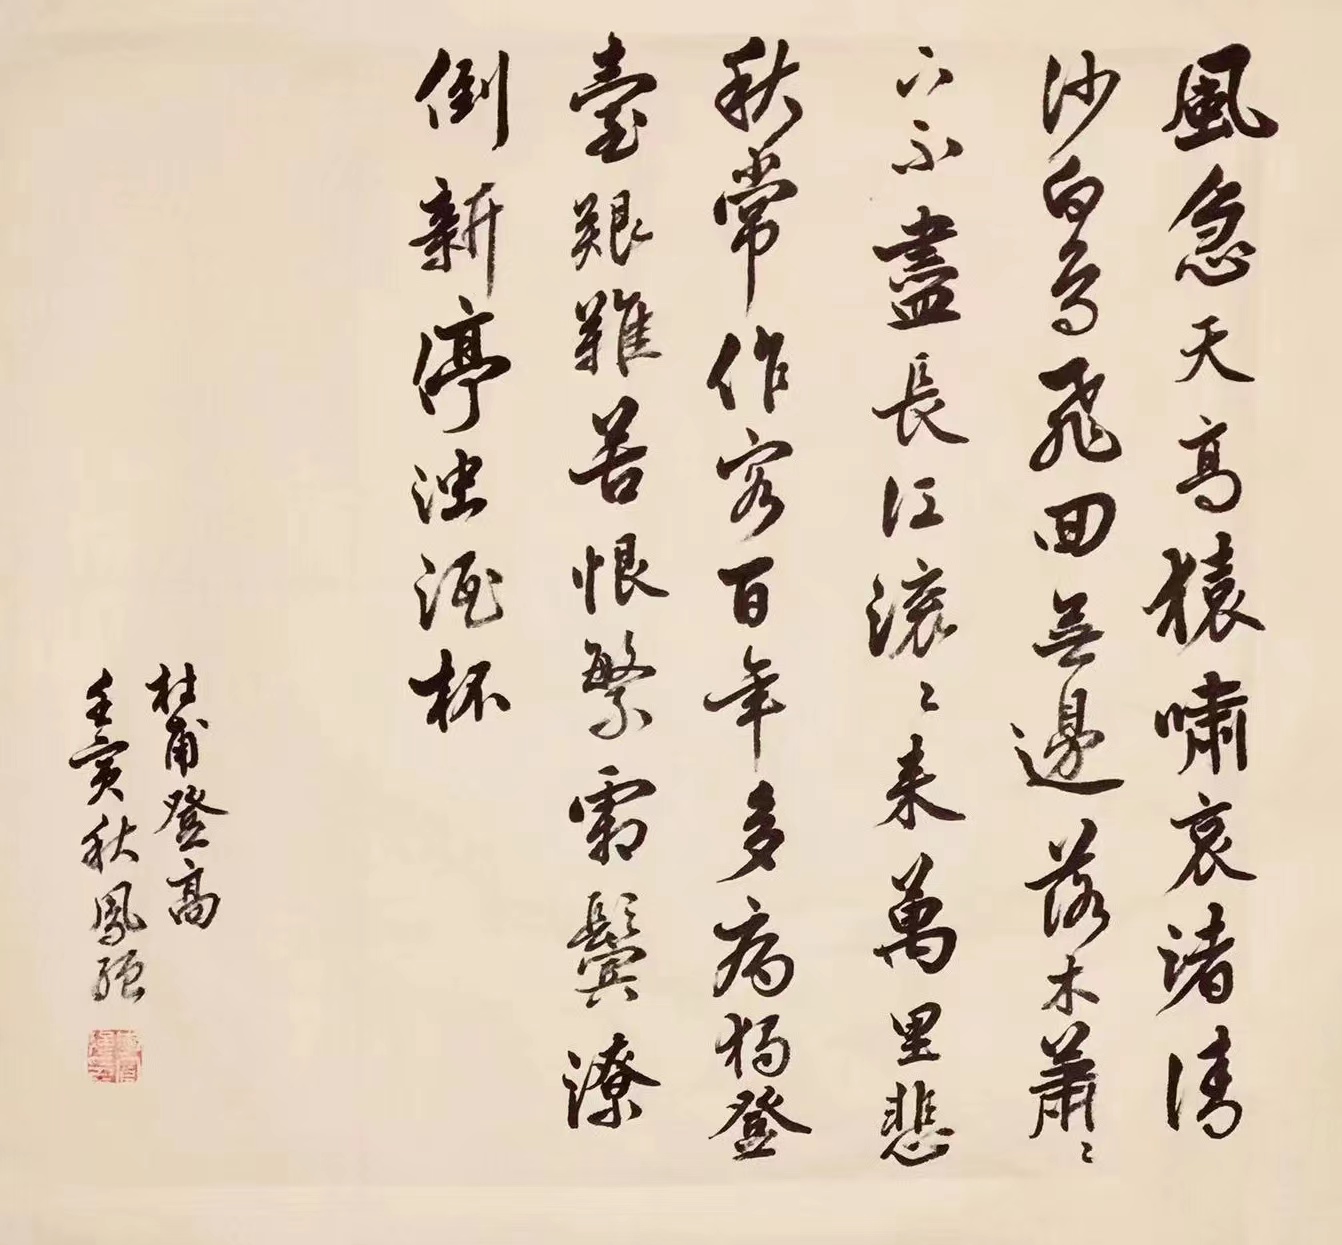 風急天高猿嘯哀渚清
沙白鸟飛回無邊落木蕭〻
下不盡長江滚〻来萬里悲
秋常作客百年多病獨登
臺艱難苦恨繁霜鬢潦
倒新停浊酒杯
杜甫登高
壬寅秋鳳强